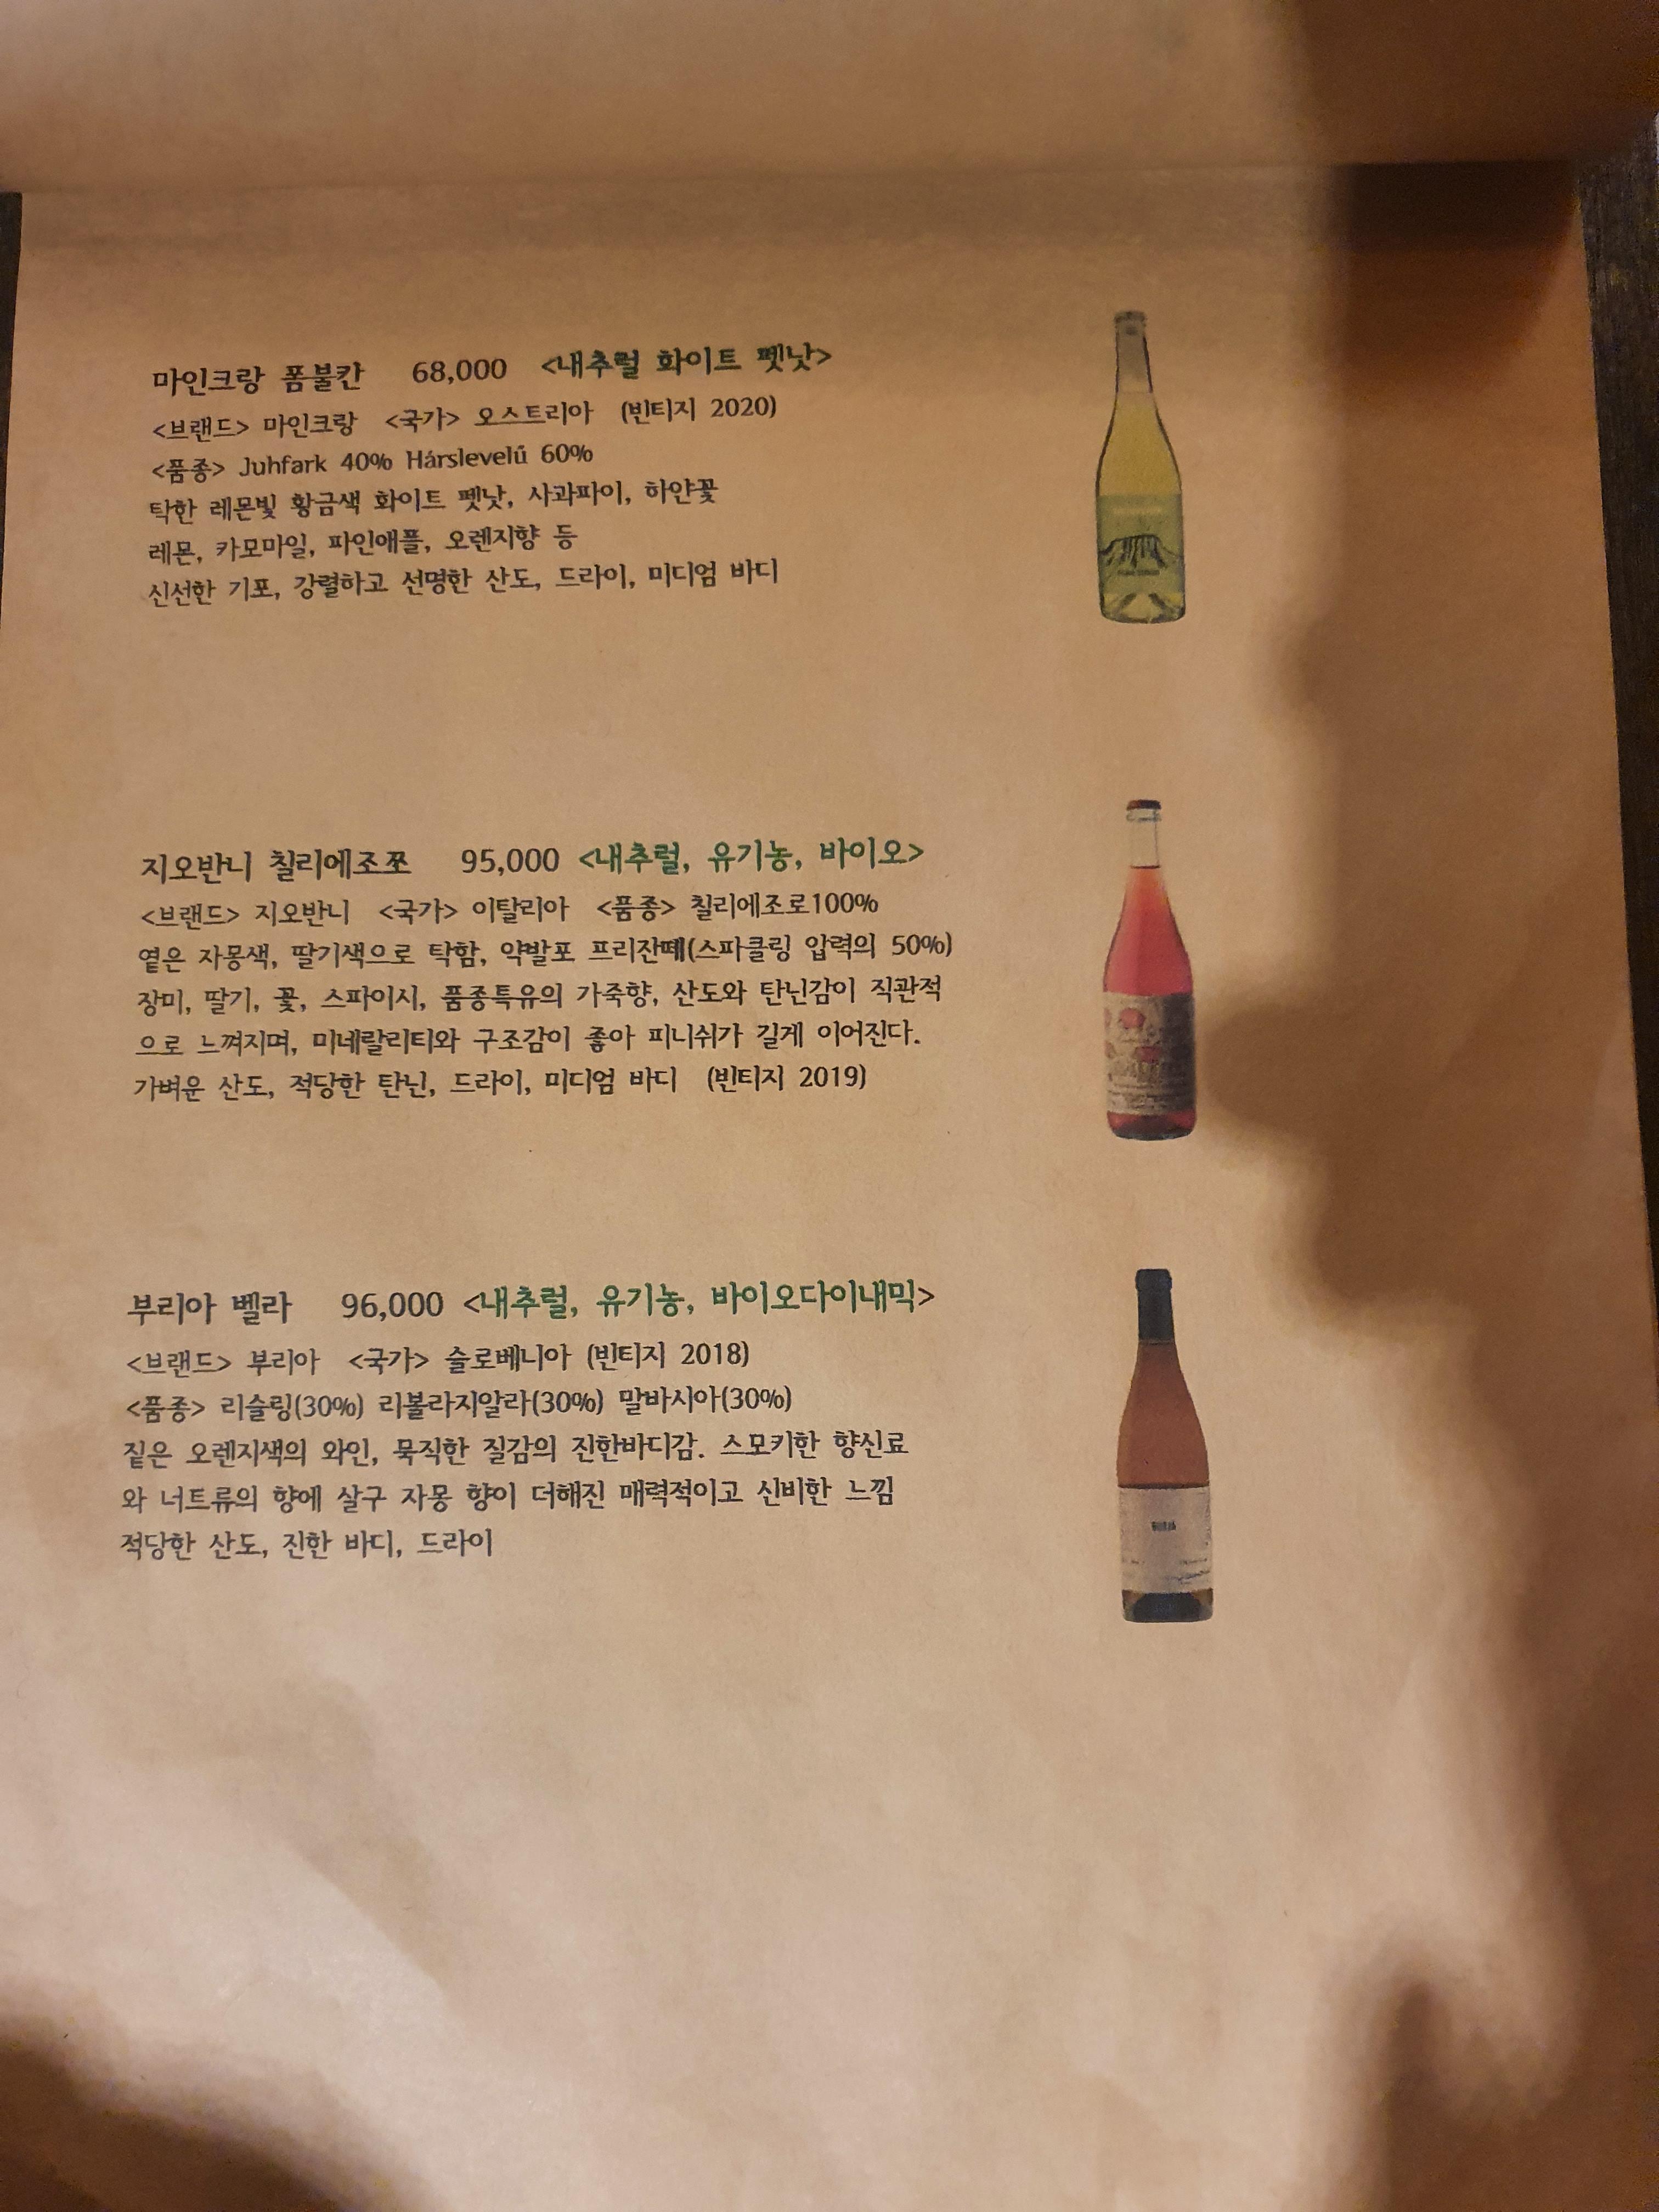 마인크랑 폼불칸 68,000 <내추럴 화이트 펫낫>
<브랜드> 마인크랑 <국가> 오스트리아 (빈티지 2020)
<품종> Juhfark 40% Hárslevelű 60%
탁한 레몬빛 황금색 화이트 펫낫, 사과파이, 하얀꽃
레몬, 카모마일, 파인애플, 오렌지향 등
신선한 기포, 강렬하고 선명한 산도, 드라이, 미디엄 바디
지오반니 칠리에조쪼 95,000 <내추럴, 유기농, 바이오>
<브랜드> 지오반니 <국가> 이탈리아 <품종> 칠리에조로100%
옅은 자몽색, 딸기색으로 탁함, 약발포 프리잔떼(스파클링 압력의 50%)
장미, 딸기, 꽃, 스파이시, 품종특유의 가죽향, 산도와 탄닌감이 직관적
으로 느껴지며, 미네랄리티와 구조감이 좋아 피니쉬가 길게 이어진다.
가벼운 산도, 적당한 탄닌, 드라이, 미디엄 바디 (빈티지 2019)
부리아 벨라 96,000 <내추럴, 유기농, 바이오다이내믹>
<브랜드> 부리아 <국가> 슬로베니아 (빈티지 2018)
<품종> 리슬링(30%) 리볼라지알라(30%) 말바시아(30%)
짙은 오렌지색의 와인, 묵직한 질감의 진한바디감. 스모키한 향신료
와 너트류의 향에 살구 자몽 향이 더해진 매력적이고 신비한 느낌
적당한 산도, 진한 바디, 드라이